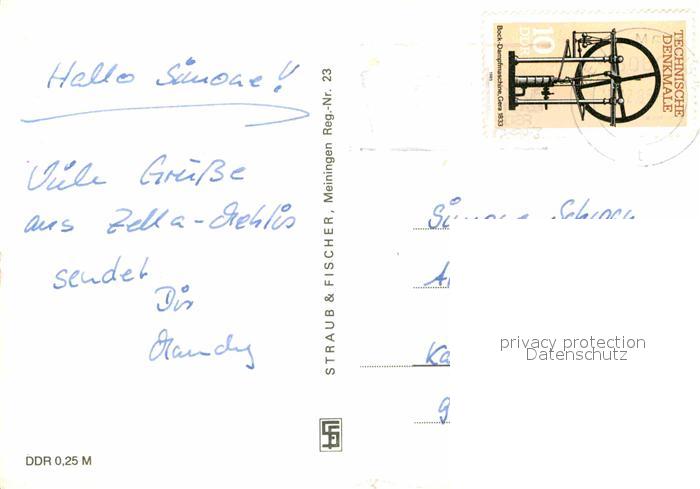 Hallo Simone!
Viele Grüße
aus Zella-Mehlis
sendet
Dir
Mandy
DDR 0,25 M
STRAUB & FISCHER, Meiningen Reg.-Nr. 23
10
DDR
TECHNISCHE
DENKMALE
Bock-Dampfmaschine, Gera 1833
1985
Simone
privacy protection
Datenschutz